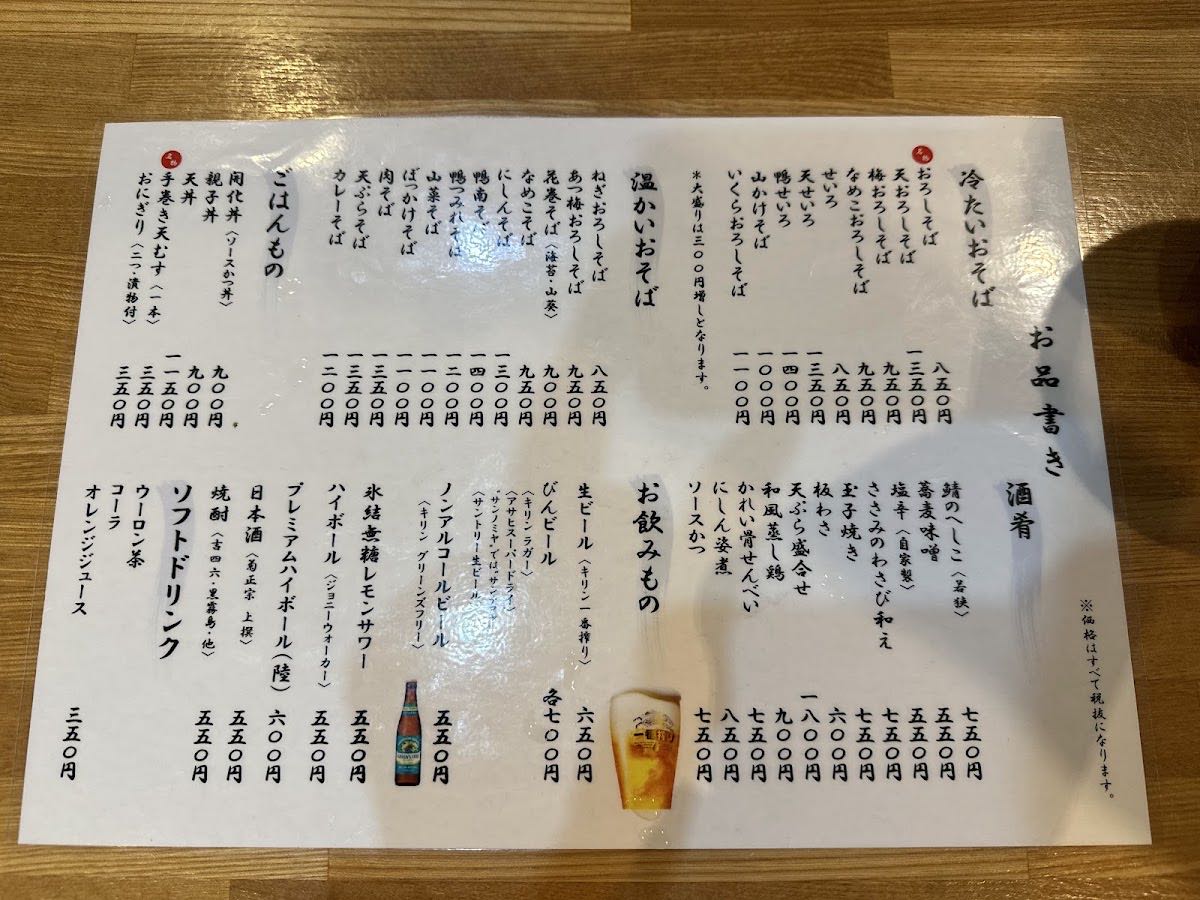 お品書き
※価格はすべて税抜になります。
冷たいおそば
名物
おろしそば 八五〇円
天おろしそば 一三五〇円
梅おろしそば 九五〇円
なめこおろしそば 九五〇円
せいろ 八五〇円
天せいろ 一三五〇円
鴨せいろ 一四〇〇円
山かけそば 一〇〇〇円
いくらおろしそば 一一〇〇円
＊大盛りは三〇〇円増しとなります。
温かいおそば
ねぎおろしそば 八五〇円
あつ梅おろしそば 九五〇円
花巻そば〈海苔・山葵〉 九〇〇円
なめこそば 九五〇円
にしんそば 一三〇〇円
鴨南そば 一四〇〇円
鴨つみれそば 一二〇〇円
山菜そば 一一〇〇円
ばっかけそば 一一〇〇円
肉そば 一三五〇円
天ぷらそば 一三五〇円
カレーそば 一二〇〇円
ごはんもの
開化丼〈ソースかつ丼〉 九〇〇円
親子丼 九〇〇円
天丼 一一五〇円
名物
手巻き天むす〈一本〉 三五〇円
おにぎり〈二つ・漬物付〉 三五〇円
酒肴
鯖のへしこ〈若狭〉 七五〇円
蕎麦味噌 五五〇円
塩辛〈自家製〉 五五〇円
ささみのわさび和え 七五〇円
玉子焼き 七五〇円
板わさ 六〇〇円
天ぷら盛合せ 一八〇〇円
和風蒸し鶏 九〇〇円
かれい骨せんべい 七五〇円
にしん姿煮 八五〇円
ソースかつ 七五〇円
お飲みもの
生ビール〈キリン一番搾り〉 六五〇円
びんビール 各七〇〇円
〈キリンラガー〉
〈アサヒスーパードライ〉
〈サントリー生ビール〉
ノンアルコールビール 五五〇円
〈キリン グリーンズフリー〉
氷結無糖レモンサワー 五五〇円
ハイボール〈ジョニーウォーカー〉 五五〇円
プレミアムハイボール(陸) 六〇〇円
日本酒〈菊正宗 上撰〉 五五〇円
焼酎〈吉四六・黒霧島・他〉 五五〇円
ソフトドリンク
ウーロン茶
コーラ
オレンジジュース 三五〇円
一番搾り